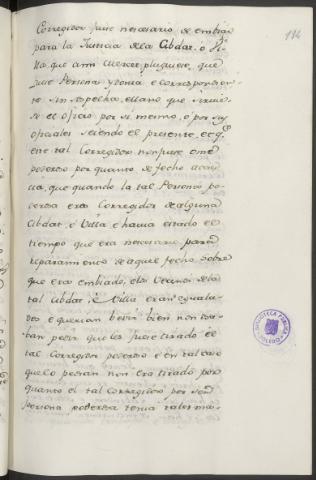 114
Corregidor fuese necesario de embiar
para la Justicia de la Cibdat, o Vi-
lla que a mi merced pluguiere, que
fuese Persona ydonea e correspondien-
te sin sospecha, e llano que sirvie-
se el oficio por si mesmo, o por sus
oficiales seiendo el presente, e q.e
este tal Corregidor non fuese ome
poderoso por quanto de fecho
que quando la tal Persona po-
derosa era Corregidor de alguna
Cibdat, e Villa e havia estado el
tiempo que era necesario para
reparamiento de aquel fecho sobre
que era embiado, e los Vecinos de la
tal Cibdat, e Villa eran
e querian bevir bien non
pedir que les fuese tirado el
tal Corregidor poderoso e en tal caso
que lo pedian non era tirado por
quanto el tal Corregidor por ser
Persona poderosa tenia tales ma-
BIBLIOTECA PUBLICA
TOLEDO